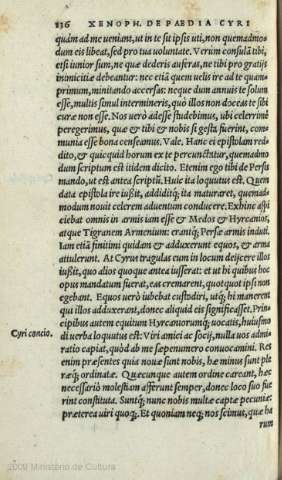 236 XENOPH. DE PAEDIA CYRI
quàm ad me ueniant, ut in te sit ipsis uti, non quemadmo-
dum eis libeat, sed pro tua uoluntate. Verum consulã tibi,
etsi iunior sum, ne quæ dederis auferas, ne tibi pro gratijs
inimicitiæ debeantur: nec etiã quem uelis ire ad te quam-
primum, minitando accersas: neque dum annuis te solum
esse, multis simul intermineris, quò illos non doceas te sibi
curæ non esse. Nos uerò adesse studebimus, ubi celerrimè
peregerimus, quæ & tibi & nobis si gesta fuerint, com-
munia esse bona censeamus. Vale. Hanc ei epistolam red
dito, & quicquid horum ex te percunctetur, quemadmo
dum scriptum est itidem dicito. Etenim ego tibi de Persis
mando, ut est antea scriptũ. Huic ita loquutus est. Quem
data epistola ire iußit, addititq; ita maturaret, quemad-
modum nouit celerem aduentum conducere. Exhinc aspi
ciebat omnis in armis iam esse & Medos & Hyrcanios,
atque Tigranem Armenium: erantq; Persæ armis induti.
Iam etiã finitimi quidam & adduxerunt equos, & arma
attulerunt. At Cyrus tragulas cum in locum deijcere illos
iußit, quo alios quoque antea iusserat: et ut hi quibus hoc
opus mandatum fuerat, eas cremarent, quotquot ipsi non
egebant. Equos uerò iubebat custodiri, utq; hi manerent
qui illos adduxerant, donec aliquid eis significasset. Prin-
cipibus autem equitum Hyrcanorumq; uocatis, huiusmo
Cyri concio. di uerba loquutus est: Viri amici ac socij, nulla uos admi-
ratio capiat, quòd ab me sæpenumero conuocamini. Res
enim præsentes quia nouæ sunt nobis, hæ minus sunt ple
ræq; ordinatæ. Quæcunque autem ordine careant, hæc
necessariò molestiam afferunt semper, donec loco suo fue
rint constituta. Suntq; nunc nobis multæ captæ pecuniæ:
præterea uiri quoq;. Et quoniam neq; nos scimus, quæ ha
rum
2009 Ministério de Cultura